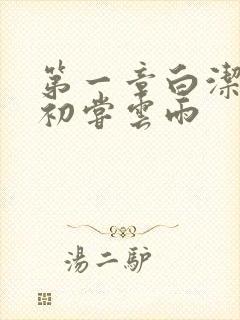 第一章白潔
初嘗雲雨
湯二驴